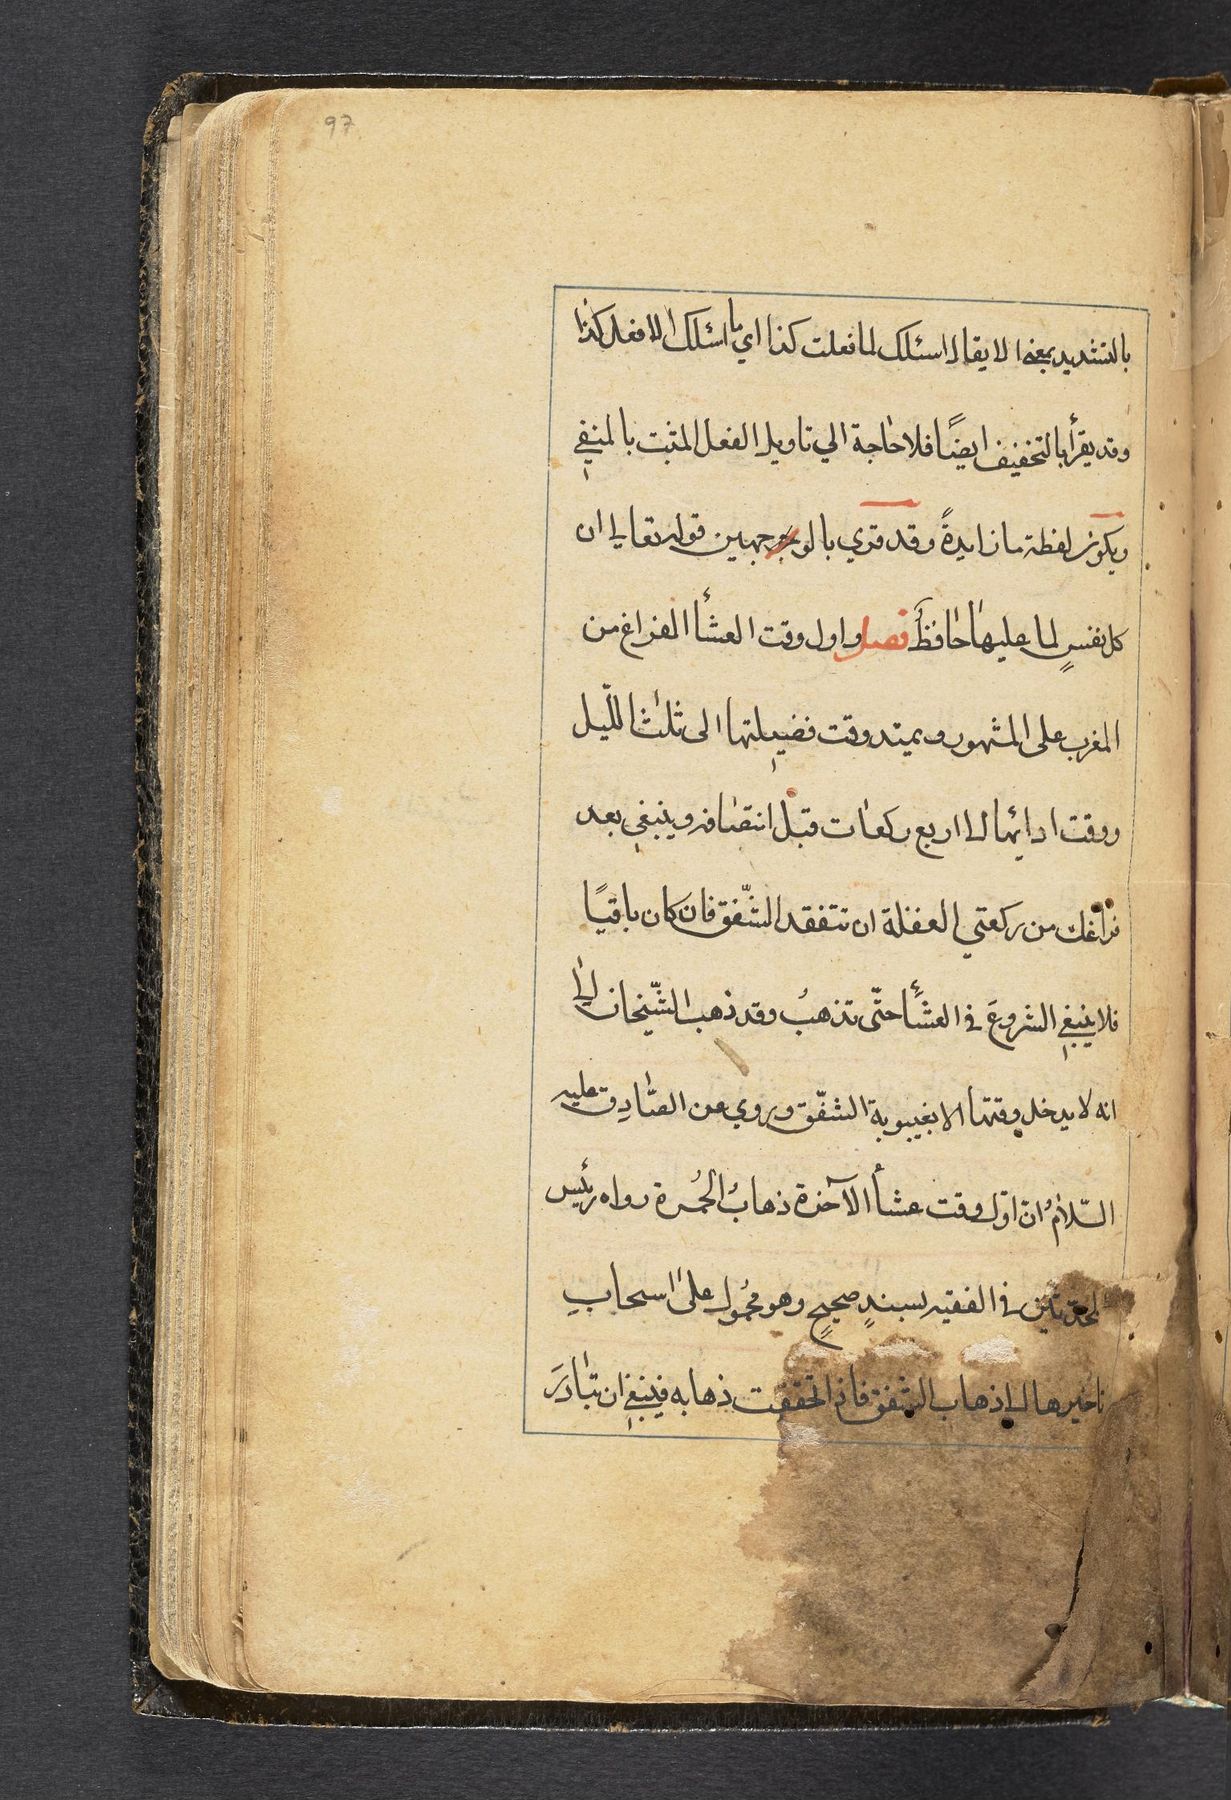 97
بالتشديد بمعنى الا يقال اسئلك لما فعلت كذا اي ما اسئلك الا فعل كذا
وقد يقرأ بالتخفيف ايضًا فلا حاجة الي تاويل الفعل المثبت بالمنفي
ويكون لفظة ما زايدةً وقد قري بالوجهين قوله تعالى ان
كل نفسٍ لما عليها حافظٌ فصل واول وقت العشأ الفراغ من
المغرب على المشهور ويمتد وقت فضيلتها الى ثلث اللّيل
ووقت ادايها الى اربع ركعات قبل انتصافه وينبغي بعد
فراغك من ركعتي الغفلة ان تتفقد الشّفق فان كان باقيًا
فلا ينبغي الشروع في العشأ حتّى تذهب وقد ذهب الشّيخان الى
انه لا يدخل وقتها الا بغيبوبة الشفّق وروي عن الصّادق عليه
السّلام ان اوّل وقت عشأ الآخرة ذهابُ الحُمرة رواه رئيس
المحدثين في الفقيه بسندٍ صحيحٍ وهو محمول على استحباب
تاخيرها الى ذهاب الشفق فاذا تحققت ذهابه فينبغي ان تبادرَ